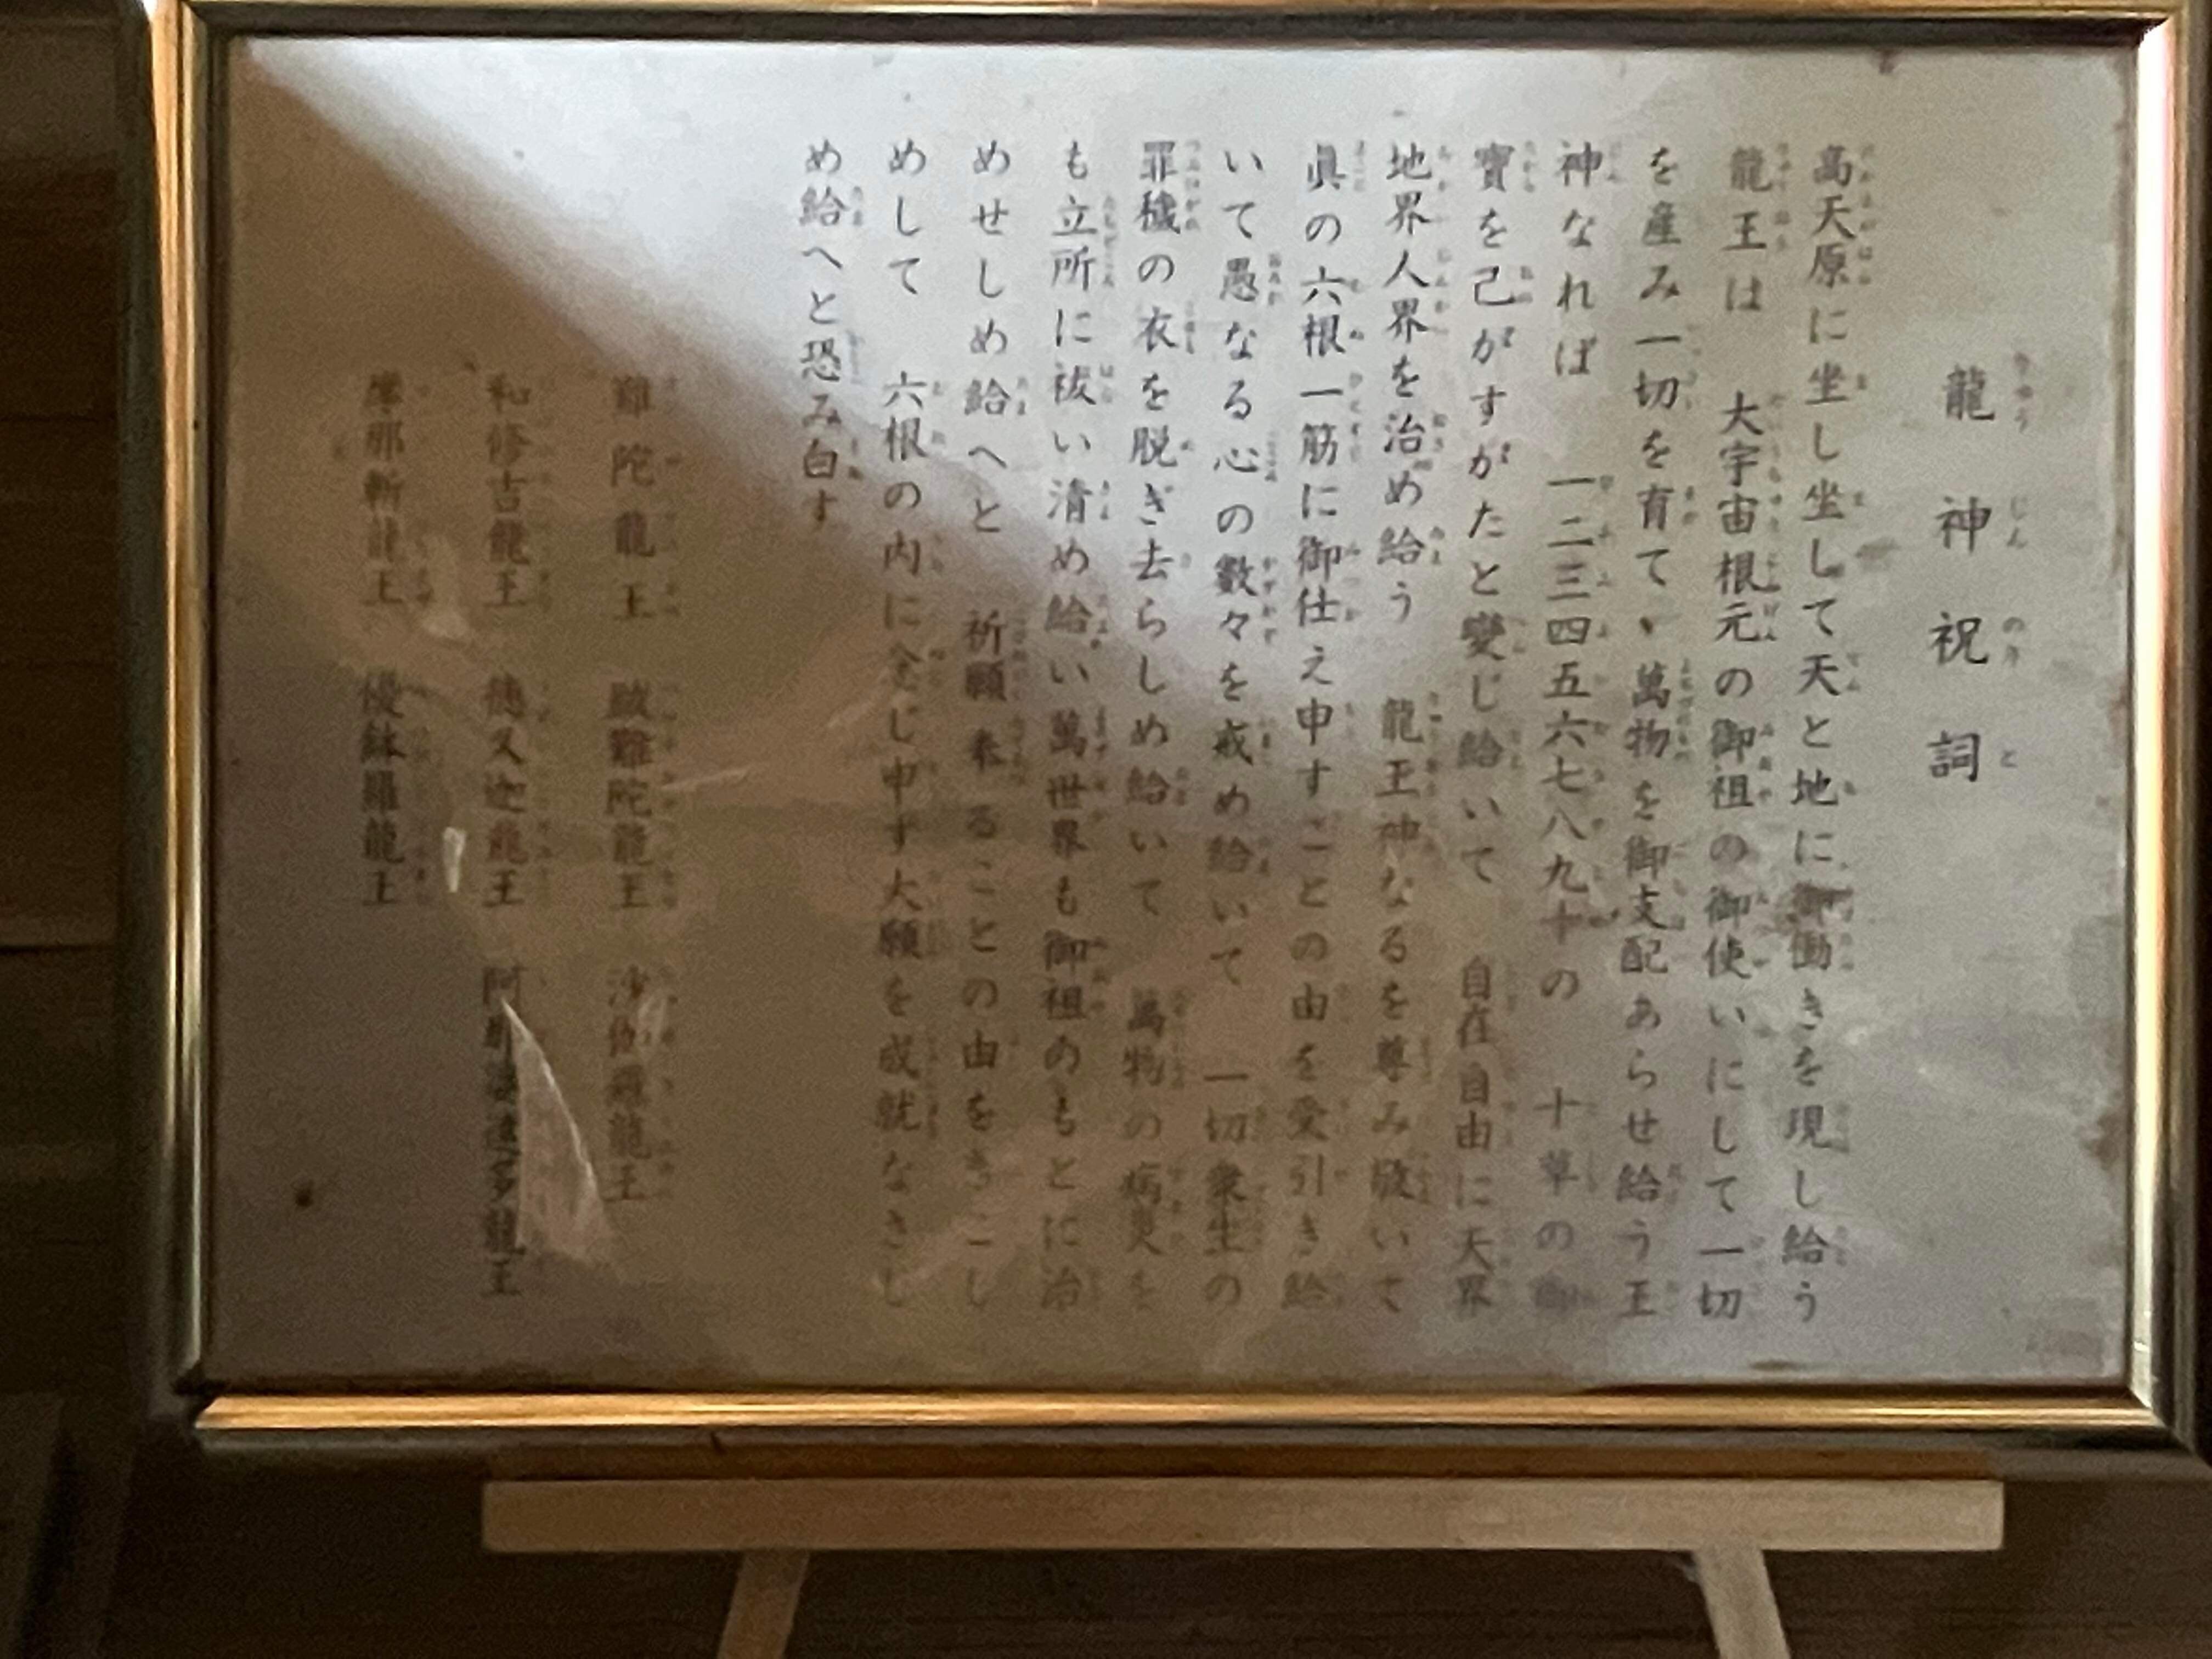 龍神祝詞
高天原に坐し坐して天と地に御働きを現し給う
龍王は 大宇宙根元の御祖の御使いにして一切
を産み一切を育て、萬物を御支配あらせ給う王
神なれば 一二三四五六七八九十の 十種の御
寶を己がすがたと變じ給いて 自在自由に天界
地界人界を治め給う 龍王神なるを尊み敬いて
眞の六根一筋に御仕え申すことの由を受引き給
いて愚なる心の數々を戒め給いて 一切衆生の
罪穢の衣を脱ぎ去らしめ給いて 萬物の病災を
も立所に祓い清め給い萬世界も御祖のもとに治
めせしめ給へと 祈願奉ることの由をきこし
めして 六根の内に念じ申す大願を成就なさし
め給へと恐み白す
難陀龍王 跋難陀龍王 沙伽羅龍王
和修吉龍王 徳叉迦龍王 阿那婆達多龍王
摩那斯龍王 優鉢羅龍王